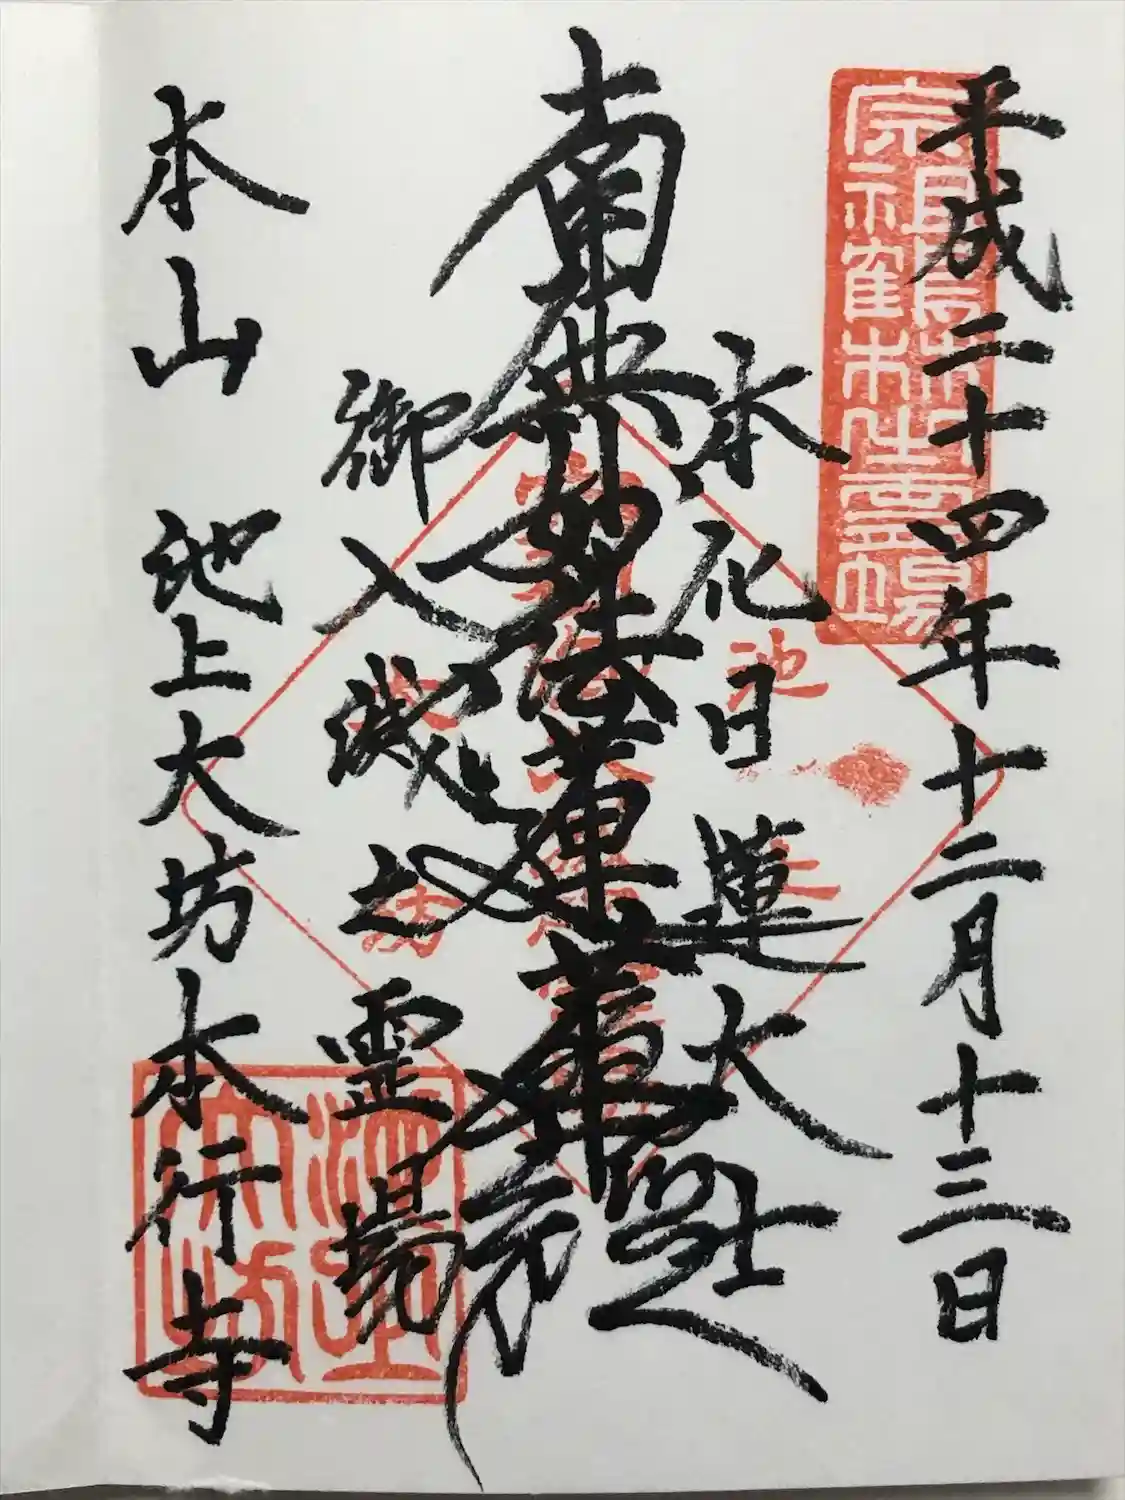 平成二十四年十二月十三日
本化日蓮大士
南無妙法蓮華経
御入滅之霊場
本山 池上大坊本行寺
池上
大坊
池上
大坊